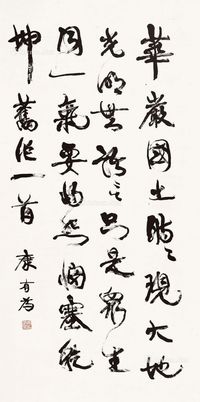 華嚴國土時時現大地
光明無語言只是眾生
同一氣要將悲憫塞乾
坤舊作一首
康有為